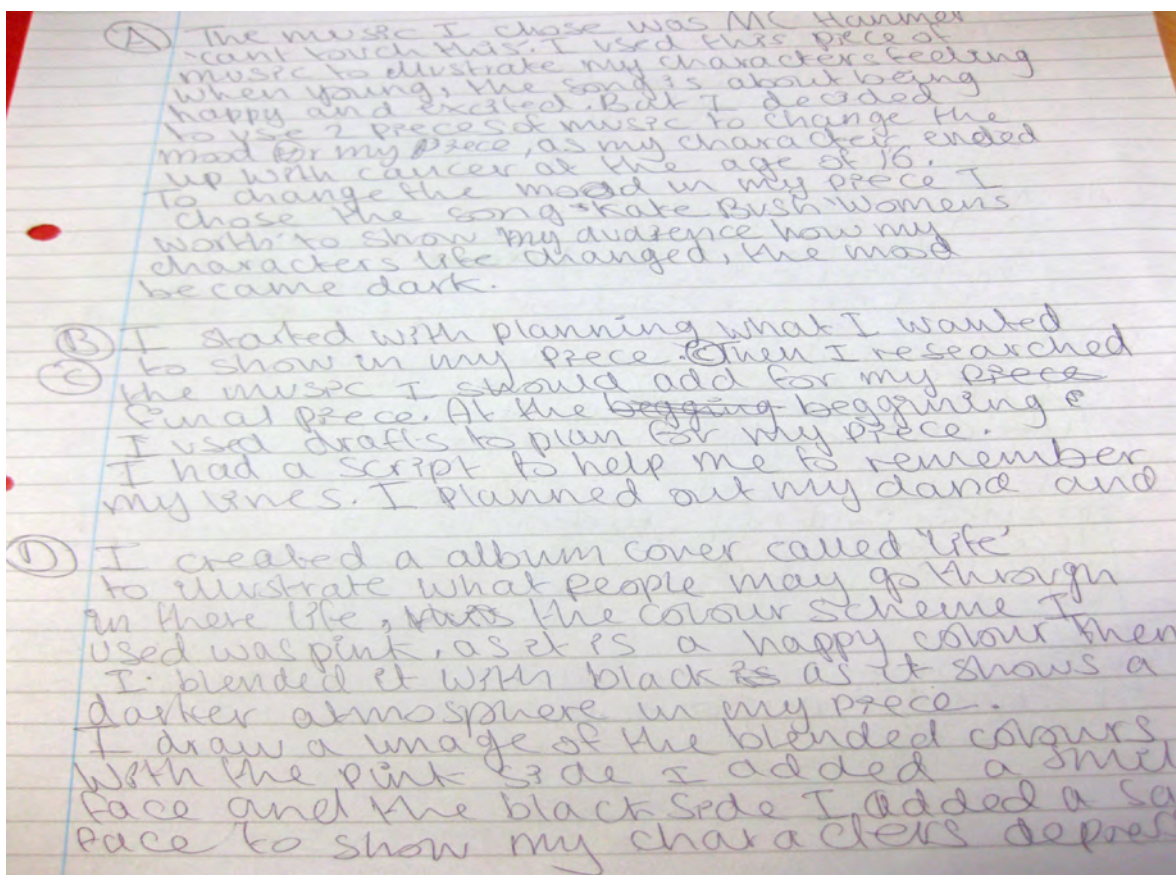 (A) The music I chose was MC Hammer
'cant touch this'. I used this piece of
music to illustrate my characters feeling
when young, the song is about being
happy and excited. But I decided
to use 2 pieces of music to change the
mood for my piece, as my character ended
up with cancer at the age of 16.
To change the mood in my piece I
chose the song 'Kate Bush Womens
worth' to show my audience how my
characters life changed, the mood
became dark.
(B) I started with planning what I wanted
(C) to show in my piece. (C) Then I researched
the music I should add for my piece
final piece. At the begging beggining
I used drafts to plan for my piece.
I had a script to help me to remember
my lines. I planned out my dance and
(D) I created a album cover called 'life'
to illustrate what people may go through
in there life, the colour scheme I
used was pink, as it is a happy colour then
I blended it with black is as it shows a
darker atmosphere in my piece.
I draw a image of the blended colours,
with the pink side I added a smil
face and the black side I added a sa
face to show my characters depres